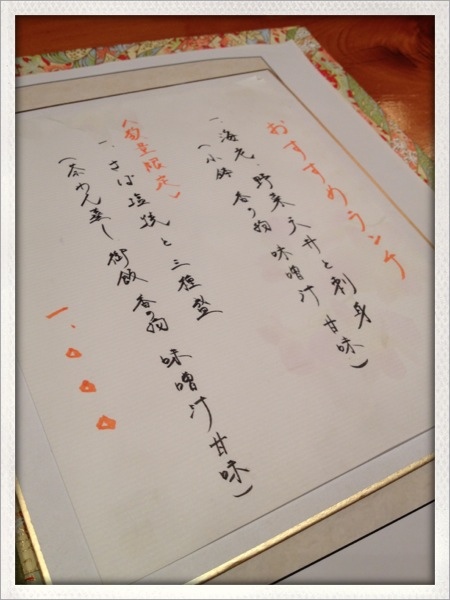 おすすめランチ
一、海老、野菜天丼と刺身
(小鉢 香の物 味噌汁 甘味)
〈数量限定〉
一、さば塩焼と三種盛
(茶わん蒸し 御飯 香の物 味噌汁 甘味)
一、〇〇〇